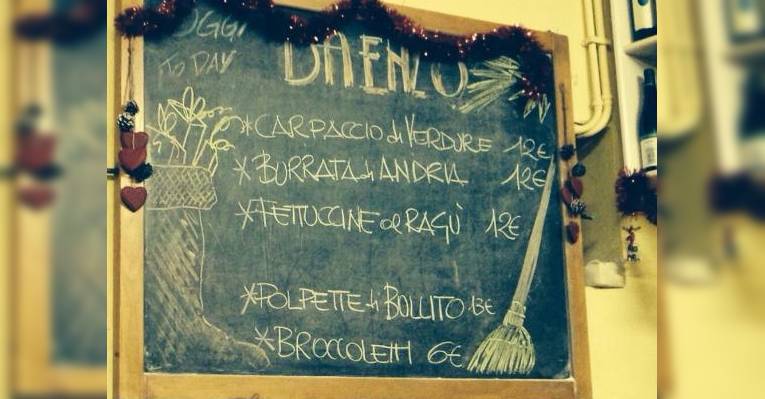 OGGI
TODAY
DA ENZO
*CARPACCIO di VERDURE 12€
*BURRATA di ANDRIA 12€
*FETTUCCINE al RAGÙ 12€
*POLPETTE di BOLLITO 13€
*BROCCOLETTI 6€